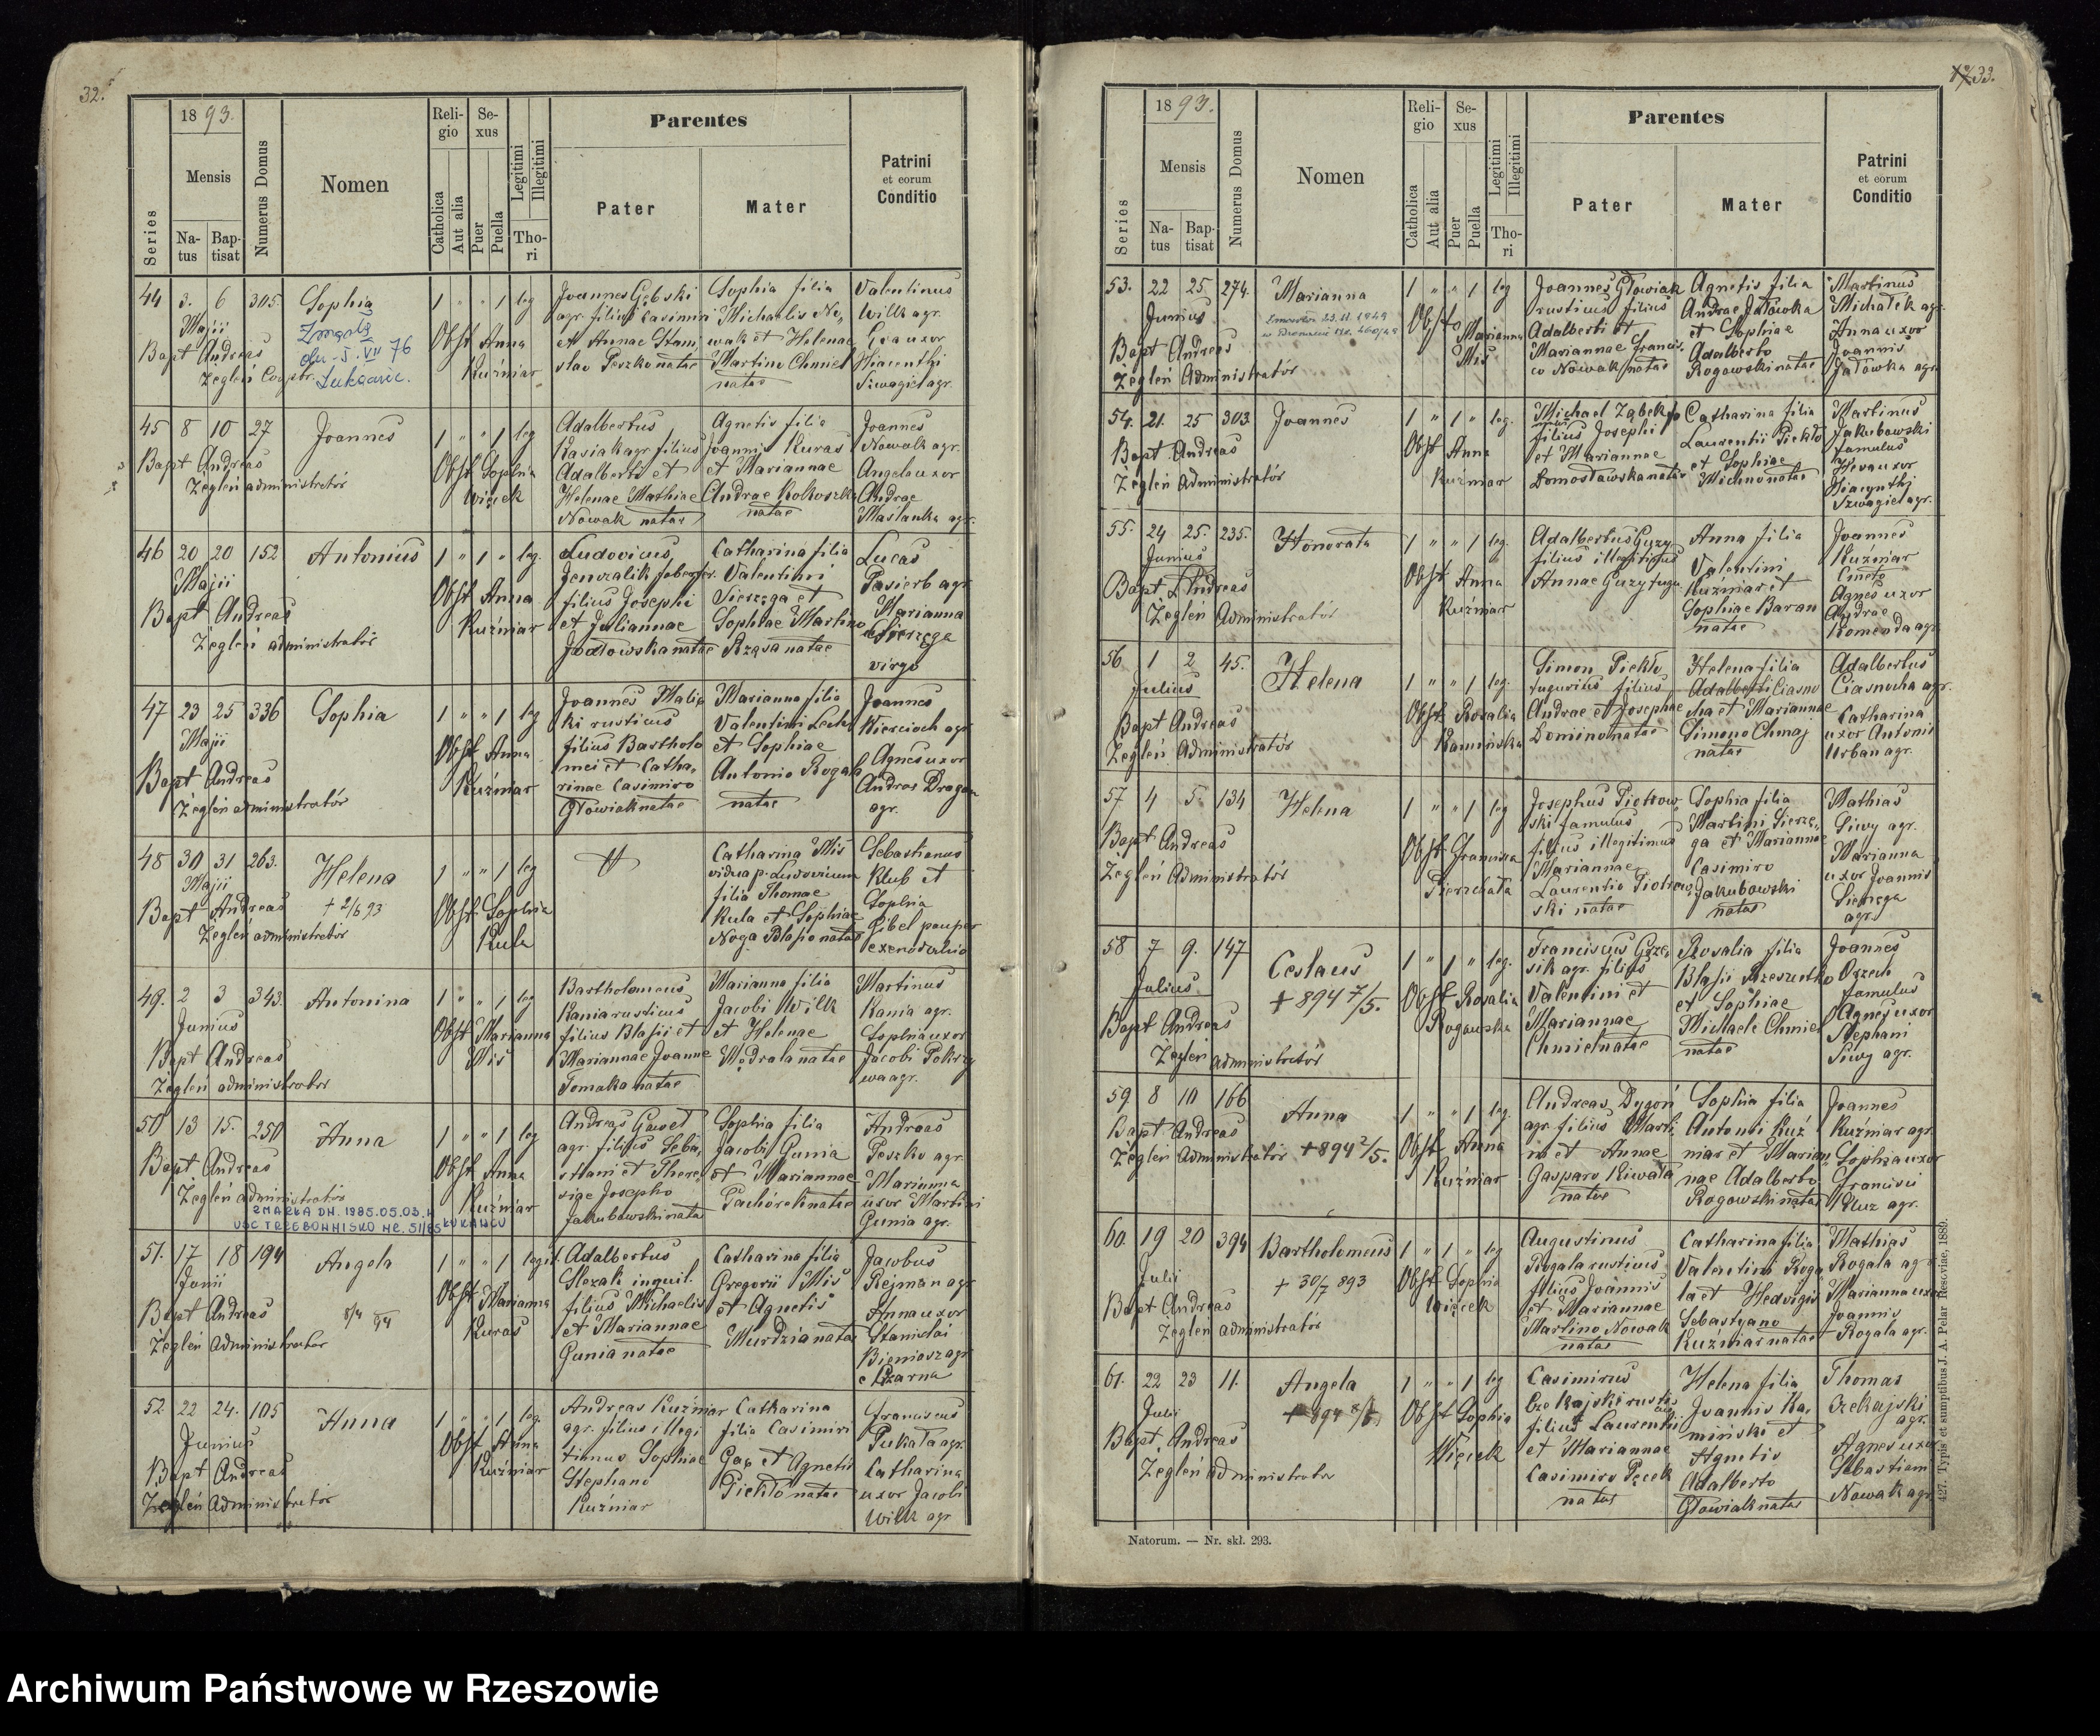 32.
1893.
Series
Mensis
Na-
tus
Bap-
tisat
Numerus Domus
Nomen
Reli-
gio
Catholica
Aut alia
Se-
xus
Puer
Puella
Legitimi
Illegitimi
Tho-
ri
Parentes
Pater
Mater
Patrini
et eorum
Conditio
44 3. 6 305. Sophia 1 " " 1 leg
Majii
Bapt Andreas
Żegleń
Obst Anna
Kuźniar
Joannes Gębski
agr. filius Casimiri
et Annae Stani,
slao Peszko natae
Sophia filia
Michaelis No,
wak et Helenae
Martino Chmiel
natae
Valentinus
Wilk agr.
Eva uxor
Hiacenthi
Szwagiel agr.
45 8 10 27 Joannes 1 " " 1 leg
Bapt Andreas
Żegleń administratór
Obst Sophia
Więcek
Adalbertus
Kasiak agr filius
Adalberti et
Helenae Mathiae
Nowak natae
Agnetis filia
Joannis Kuras
et Mariannae
Andrae Kokoszka
natae
Joannes
Nowak agr.
Angela uxor
Andrae
Maślanka agr.
46 20 20 152 Antonius 1 " 1 " leg.
Majii
Bapt Andreas
Żegleń administratór
Obst Anna
Kuźniar
Ludovicus
filius Josephi
et Juliannae
Jodłowska natae
Catharina filia
Valentini
Sierzęga et
Sophiae Martino
Rząsa natae
Lucas
Pasierb agr.
Marianna
Sierzęga
virgo
47 23 25 336 Sophia 1 " " 1 leg
Majii
Bapt Andreas
Żegleń administratór
Obst Anna
Kuźniar
Joannes Malic
ki rusticus
filius Bartholo
mei et Catha,
rinae Casimiro
Głowiak natae
Marianna filia
Valentini Lech
et Sophiae
Antonio Rogala
natae
Joannes
Wiercioch agr
Agnes uxor
Andrae Dragan
agr.
48 30 31 263. Helena 1 " " 1 leg
Majii
+ 2/6 93
Bapt Andreas
Żegleń administratór
Obst Sophia
Kula
Catharina Miś
vidua p. Ludovicum
filia Thomae
Kula et Sophiae
Noga Blasio natae
Sebastianus
Kłub et
Sophia
Gibel pauper
49. 2 3 343. Antonina 1 " " 1 leg
Junius
Bapt Andreas
Żegleń administrator
Obst Marianna
Miś
Bartholomeus
Kania rusticus
filius Blasii et
Mariannae Joanne
Tomaka natae
Marianna filia
Jacobi Wilk
et Helenae
Wędrala natae
Martinus
Kania agr.
Sophia uxor
Jacobi Pokrzy
wa agr.
50 13 15. 250 Anna 1 " " 1 leg
Bapt Andreas
Żegleń administratór
ZMARŁA DN. 1985.05.03.
USC TRZEBOWNISKO NR. 51/85
Obst Anna
Kuźniar
Andreas Gaweł
agr. filius Seba,
stiani et There,
siae Josepho
Jakubowski nata
Sophia filia
Jacobi Gunia
et Mariannae
Pachórek natae
Andreas
Peszko agr.
Marianna
uxor Martini
Gunia agr.
51. 17 18 194 Angela 1 " " 1 legit
Junii
Bapt Andreas
Żegleń Administrator
Obst Marianna
Kuras
Adalbertus
Slezak inquil.
filius Michaelis
et Mariannae
Gunia natae
Catharina filia
Gregorii Miś
et Agnetis
Murdzia natae
Jacobus
Rejman agr
Anna uxor
Stanislai
Bieniasz agr
e Czarna
52 22 24. 105 Anna 1 " " 1 leg.
Junius
Bapt Andreas
Żegleń Administratór
Obst Anna
Kuźniar
Andreas Kuźniar
agr. filius illegi
timus Sophiae
Stephano
Kuźniar
Catharina
filia Casimiri
Gap et Agnetis
Piekło natae
Franciscus
Pukała agr.
Catharina
uxor Jacobi
Wilk agr
33.
1893.
Series
Mensis
Na-
tus
Bap-
tisat
Numerus Domus
Nomen
Reli-
gio
Catholica
Aut alia
Se-
xus
Puer
Puella
Legitimi
Illegitimi
Tho-
ri
Parentes
Pater
Mater
Patrini
et eorum
Conditio
53. 22 25 274. Marianna 1 " " 1 leg
Junius
Bapt Andreas
Żegleń Administratór
Obst Marianna
Miś
Joannes Głowiak
rusticus filius
Adalberti et
Mariannae Francis,
co Nowak natae
Agnetis filia
Andrae Jałowka
et Sophiae
Adalberto
Rogowski natae
Martinus
Michałek agr
Anna uxor
Joannis
Jałowka agr
54. 21. 25 303. Joannes 1 " 1 " leg.
Bapt Andreas
Żegleń Administratór
Obst Anna
Kuźniar
Michael Ząbek
filius Josephi
et Mariannae
Domosławska natae
Catharina filia
Laurentii Piekło
et Sophiae
Michno natae
Martinus
Jakubowski
famulus
Heva uxor
Hiacynthi
Szwagiel agr.
55. 24 25. 235. Honorata 1 " " 1 leg.
Junius
Bapt Andreas
Żegleń Administratór
Obst Anna
Kuźniar
Adalbertus Guzy
filius illegitimus
Annae Guzy
Anna filia
Valentini
Kuźniar et
Sophiae Baran
natae
Joannes
Kuźniar
Agnes uxor
Andrae
Komenda agr
56 1 2 45. Helena 1 " " 1 leg.
Julius
Bapt Andreas
Żegleń Administratór
Obst Rosalia
Kamińska
Simon Piekło
filius
Andrae et Josephae
Domino natae
Helena filia
Adalberti Ciasno
cha et Mariannae
Simone Chmaj
natae
Adalbertus
Ciasnocha agr.
Catharina
uxor Antonii
Urban agr.
57 4 5. 134 Helena 1 " " 1 leg
Bapt Andreas
Żegleń Administratór
Obst Francisca
Pierzchała
Josephus Piotrow
ski famulus
filius illegitimus
Mariannae
Laurentio Piotrow,
ski natae
Sophia filia
Martini Sierzę,
ga et Mariannae
Casimiro
Jakubowski
natae
Mathias
Siwy agr.
Marianna
uxor Joannis
Sierzęga
agr.
58 7 9. 147 Ceslaus 1 " 1 " leg.
Julius
+ 894 7/5.
Bapt Andreas
Żegleń administratór
Obst Rosalia
Rogowska
Franciscus Grze,
sik agr. filius
Valentini et
Mariannae
Chmiel natae
Rosalia filia
Blasii Rzeszutko
et Sophiae
Michaele Chmiel
natae
Joannes
Orzech
famulus
Agnes uxor
Stephani
Siwy agr.
59 8 10 166 Anna 1 " " 1 leg.
Bapt Andreas
Żegleń Administratór + 894 2/5.
Obst Anna
Kuźniar
Andreas Dygoń
agr filius Marti,
ni et Annae
Gasparo Kiwała
natae
Sophia filia
Antonii Kuź
niar et Marian,
nae Adalberto
Rogowski natae
Joannes
Kuźniar agr.
Sophia uxor
Francisci
Kluz agr.
60 19 20 394 Bartholomeus 1 " 1 " leg
Julii
+ 30/7 893
Bapt Andreas
Żegleń administratór
Obst Sophia
Więcek
Augustinus
Rogala rusticus
filius Joannis
et Mariannae
Martino Nowak
natae
Catharina filia
Valentini Roga
la et Hedvigis
Sebastyano
Kuźniar natae
Mathias
Rogala agr
Marianna uxor
Joannis
Rogala agr.
61. 22 23 11. Angela 1 " " 1 leg
Julii
Bapt. Andreas
Żegleń administrator
Obst Sophia
Więcek
Casimirus
Czekajski rusti,
cus
filius Laurentii
et Mariannae
Casimiro Pęcek
natae
Helena filia
Joannis Ka,
miński et
Agnetis
Adalberto
Głowiak natae
Thomas
Czekajski
agr.
Agnes uxor
Sebastiani
Nowak agr
Natorum. — Nr. skł. 293.
427. Typis et sumptibus J. A. Pelar Resoviae, 1889.
Archiwum Państwowe w Rzeszowie